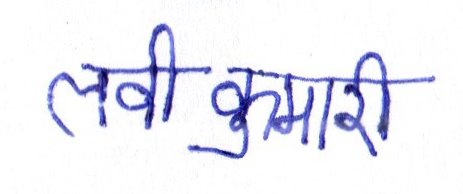 लवी कुमारी